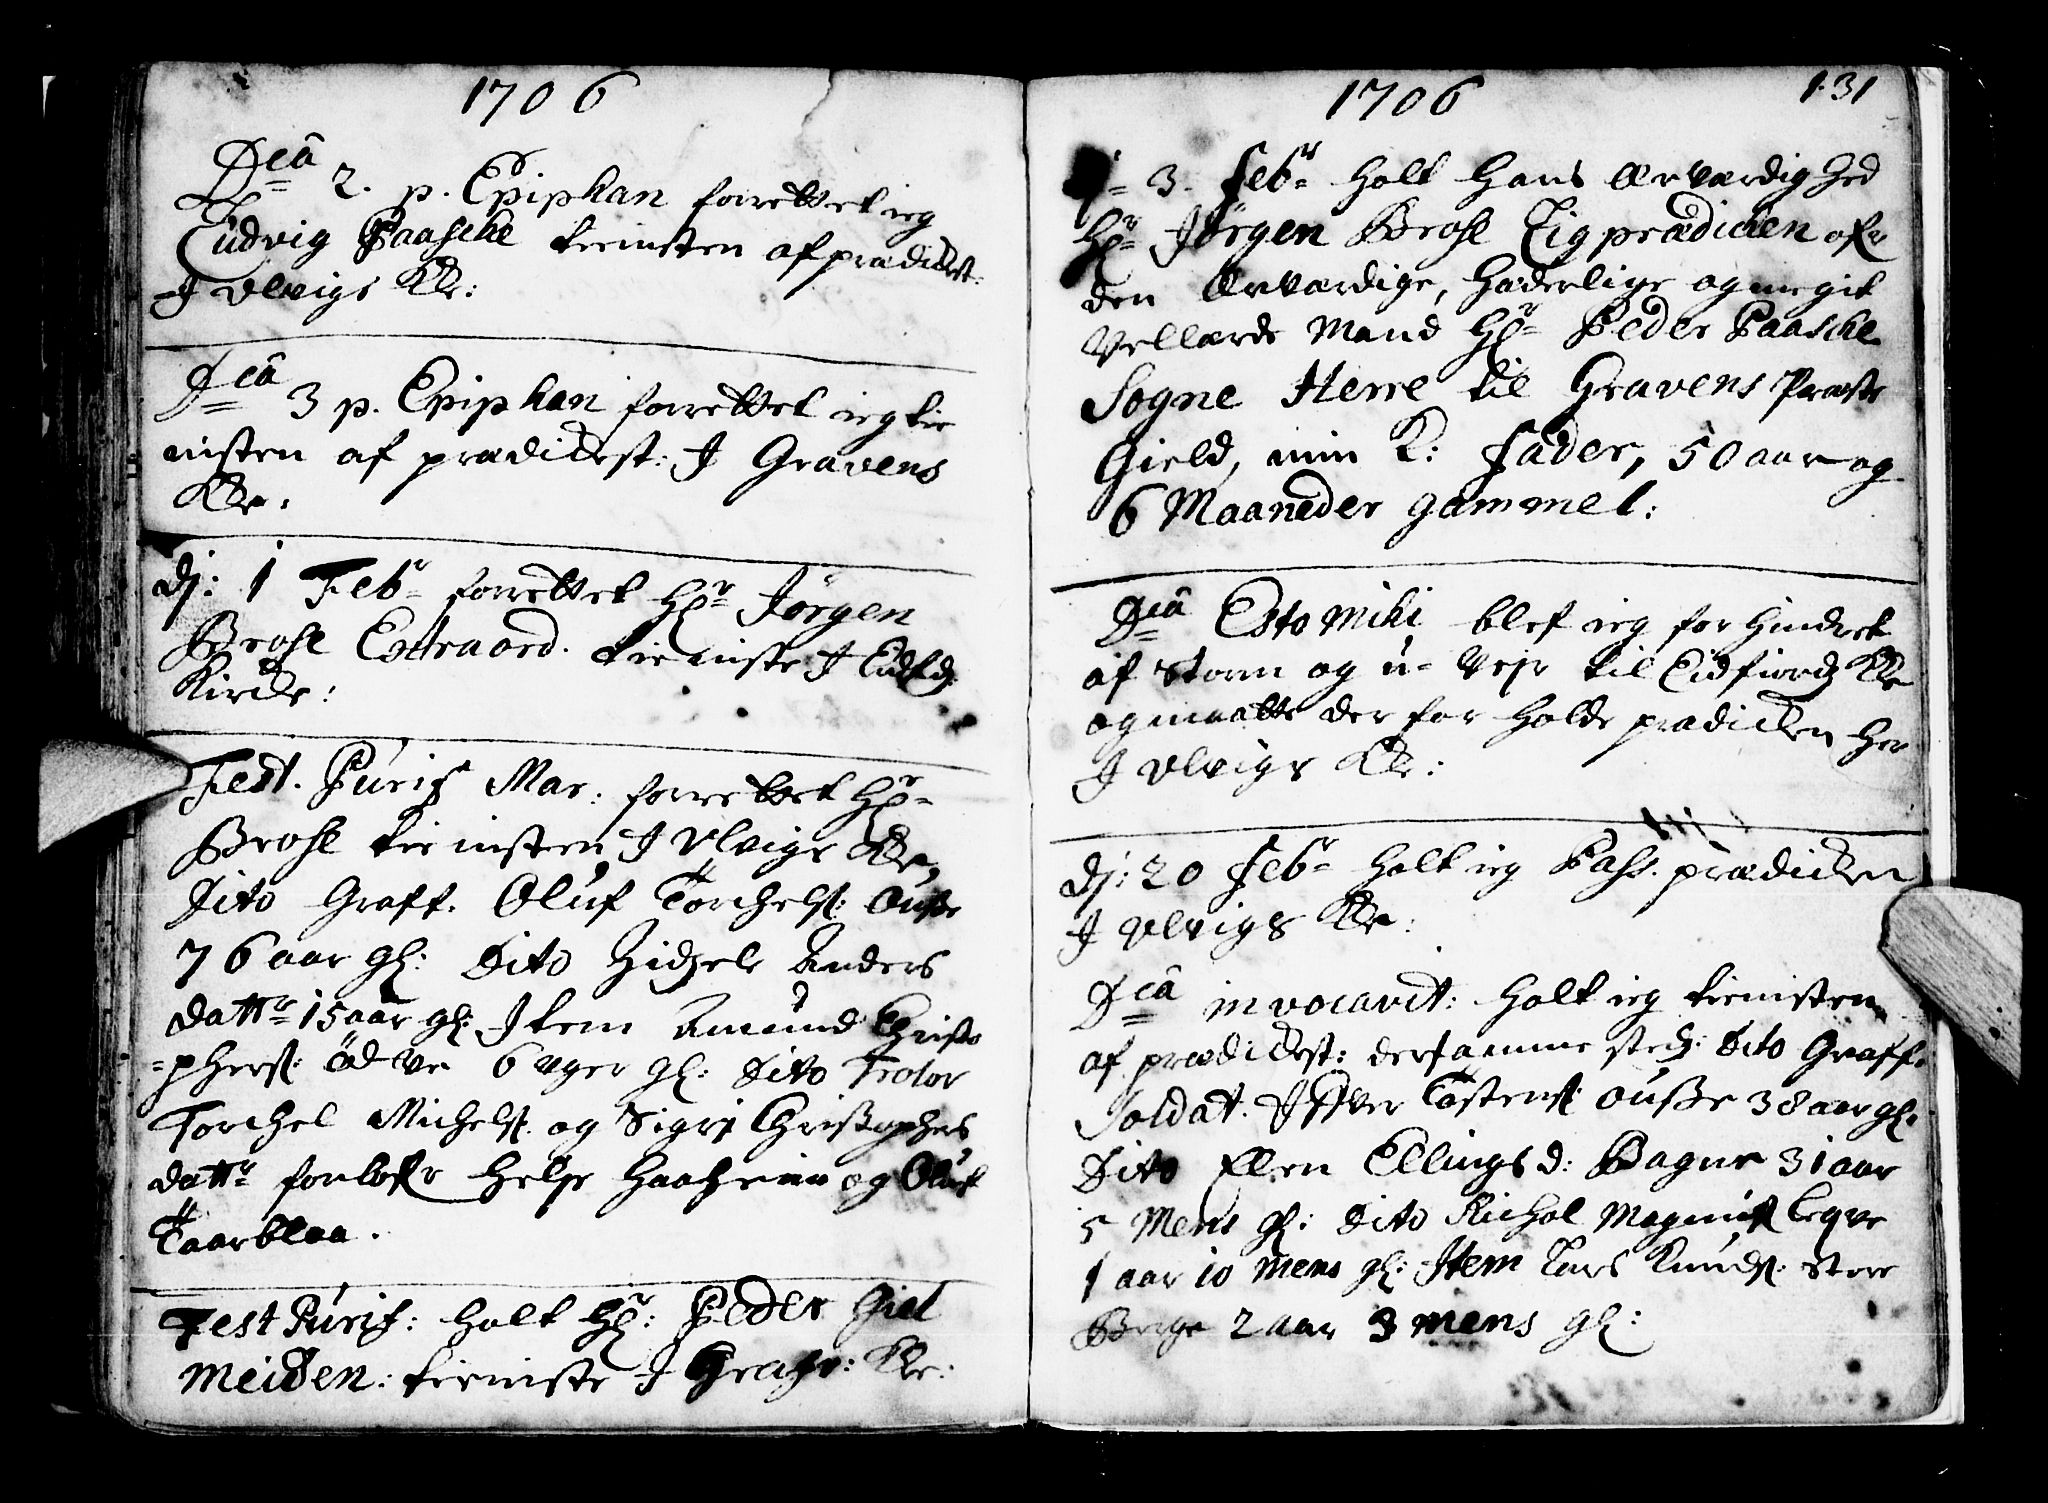 1706
Dcâ 2. p. Epiphan forrettet ieg
Ludvig Paasche tienisten af prædickest:
J Ulvigs Kke:
Dcâ 3 p. Epiphan forrettet ieg tie
nisten af prædickest: J Gravens
Kke.
dj: 1 Febr forrettet Hr Jörgen
Brose Extraord. tieniste J Eidfd:
Kircke:
Fest. Purif Mar: forrettet Hr
Brose tienisten J Ulvigs Kke,
Dito Graff. Oluf Torchels: Ousse
76 aar gl: Dito Zidsele Anders
dattr 15 aar gl: Item Amund Christo
=phers: Ödve 6 uger gl: Dito Trolov
Torchel Michels: og Sigrj Christophers
dattr forlofr Helje Haaheim og Oluf
Taarblaa.
Fest Purif: holt Hr: Peder Giel
meiden: tieniste J Gravs: Kke:
1706 131
dj= 3. Febr holt Hans Ærværdighed
Hr Jörgen Brose Ligprædicken ofr
den Ærværdige, Hæderlige og megit
Vellærde Mand Hr Peder Paasche
Sogne Herre til Gravens Præste
Gield, min K: Fader, 50 aar og
6 Maaneder gammel:
Dcâ Esto mihi blef ieg forhindret
af Storm og u-Vejr til Eidfiords Kke
og maatte derfor holde prædicken her
J Ulvigs Kke:
dj: 20 Febr holt ieg Pass. prædicken
J Ulvigs Kke:
Dcâ invocavit: holt ieg tienisten
af prædickest: dersamme sted: Dito Graff.
Soldat. Ifver Tostens: Ousse 38 aar gl:
Dito Ellen Ellings d: Bagne 31 aar
5 Mens gl: Dito Michal Magnus: Leqve
1 aar 10 mens gl: Item Lars Knuds: Store
Berge 2 aar 3 mens gl: